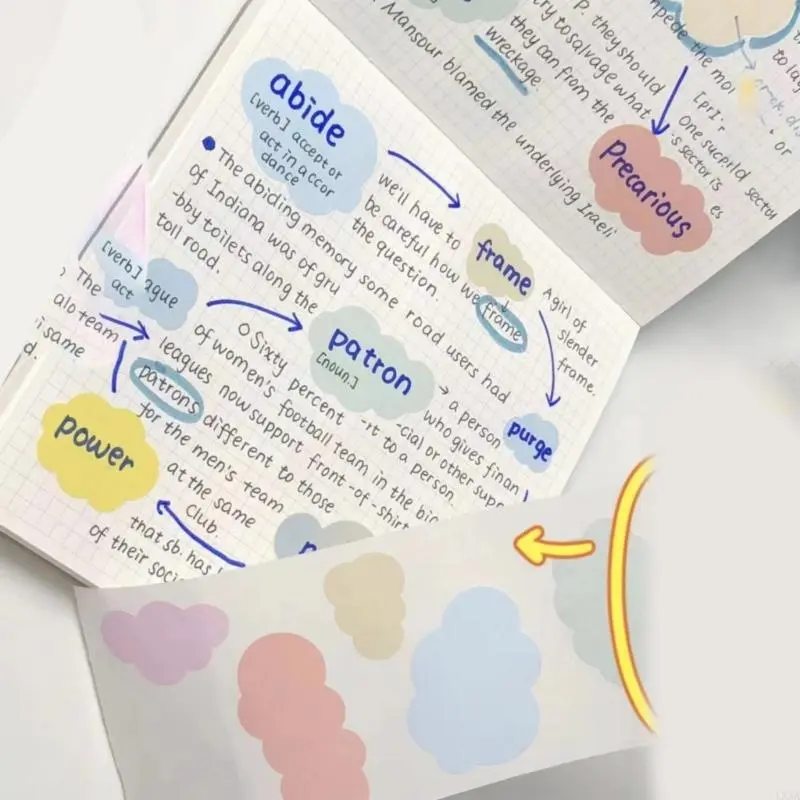 abide
[verb] accept or
act in a ccor
dance
The abiding memory some road users had
of Indiana was of gru
-bby toilets along the
toll road.
we'll have to
be careful how we frame
the question.
frame
A girl of
slender
frame.
purge
patron
[noun.]
→ a person
who gives finan
-cial or other supp
-rt to a person
Sixty percent
of women's football team in the big
leagues now support front-of-shirt
patrons different to those
for the men's team
at the same
Club.
[verb] ague
act
The
alo team
i same
d.
power
that sb. has
of their soci
P. they should
try to salvage what
they can from the
wreckage.
Mansour blamed the underlying Iraeli
mpede the mo
precarious